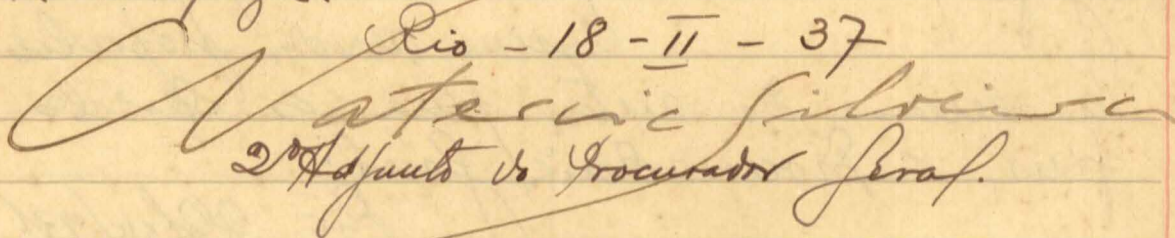 Rio - 18 - II - 37
Natercia Silveira
2º Adjunto do Procurador Geral.